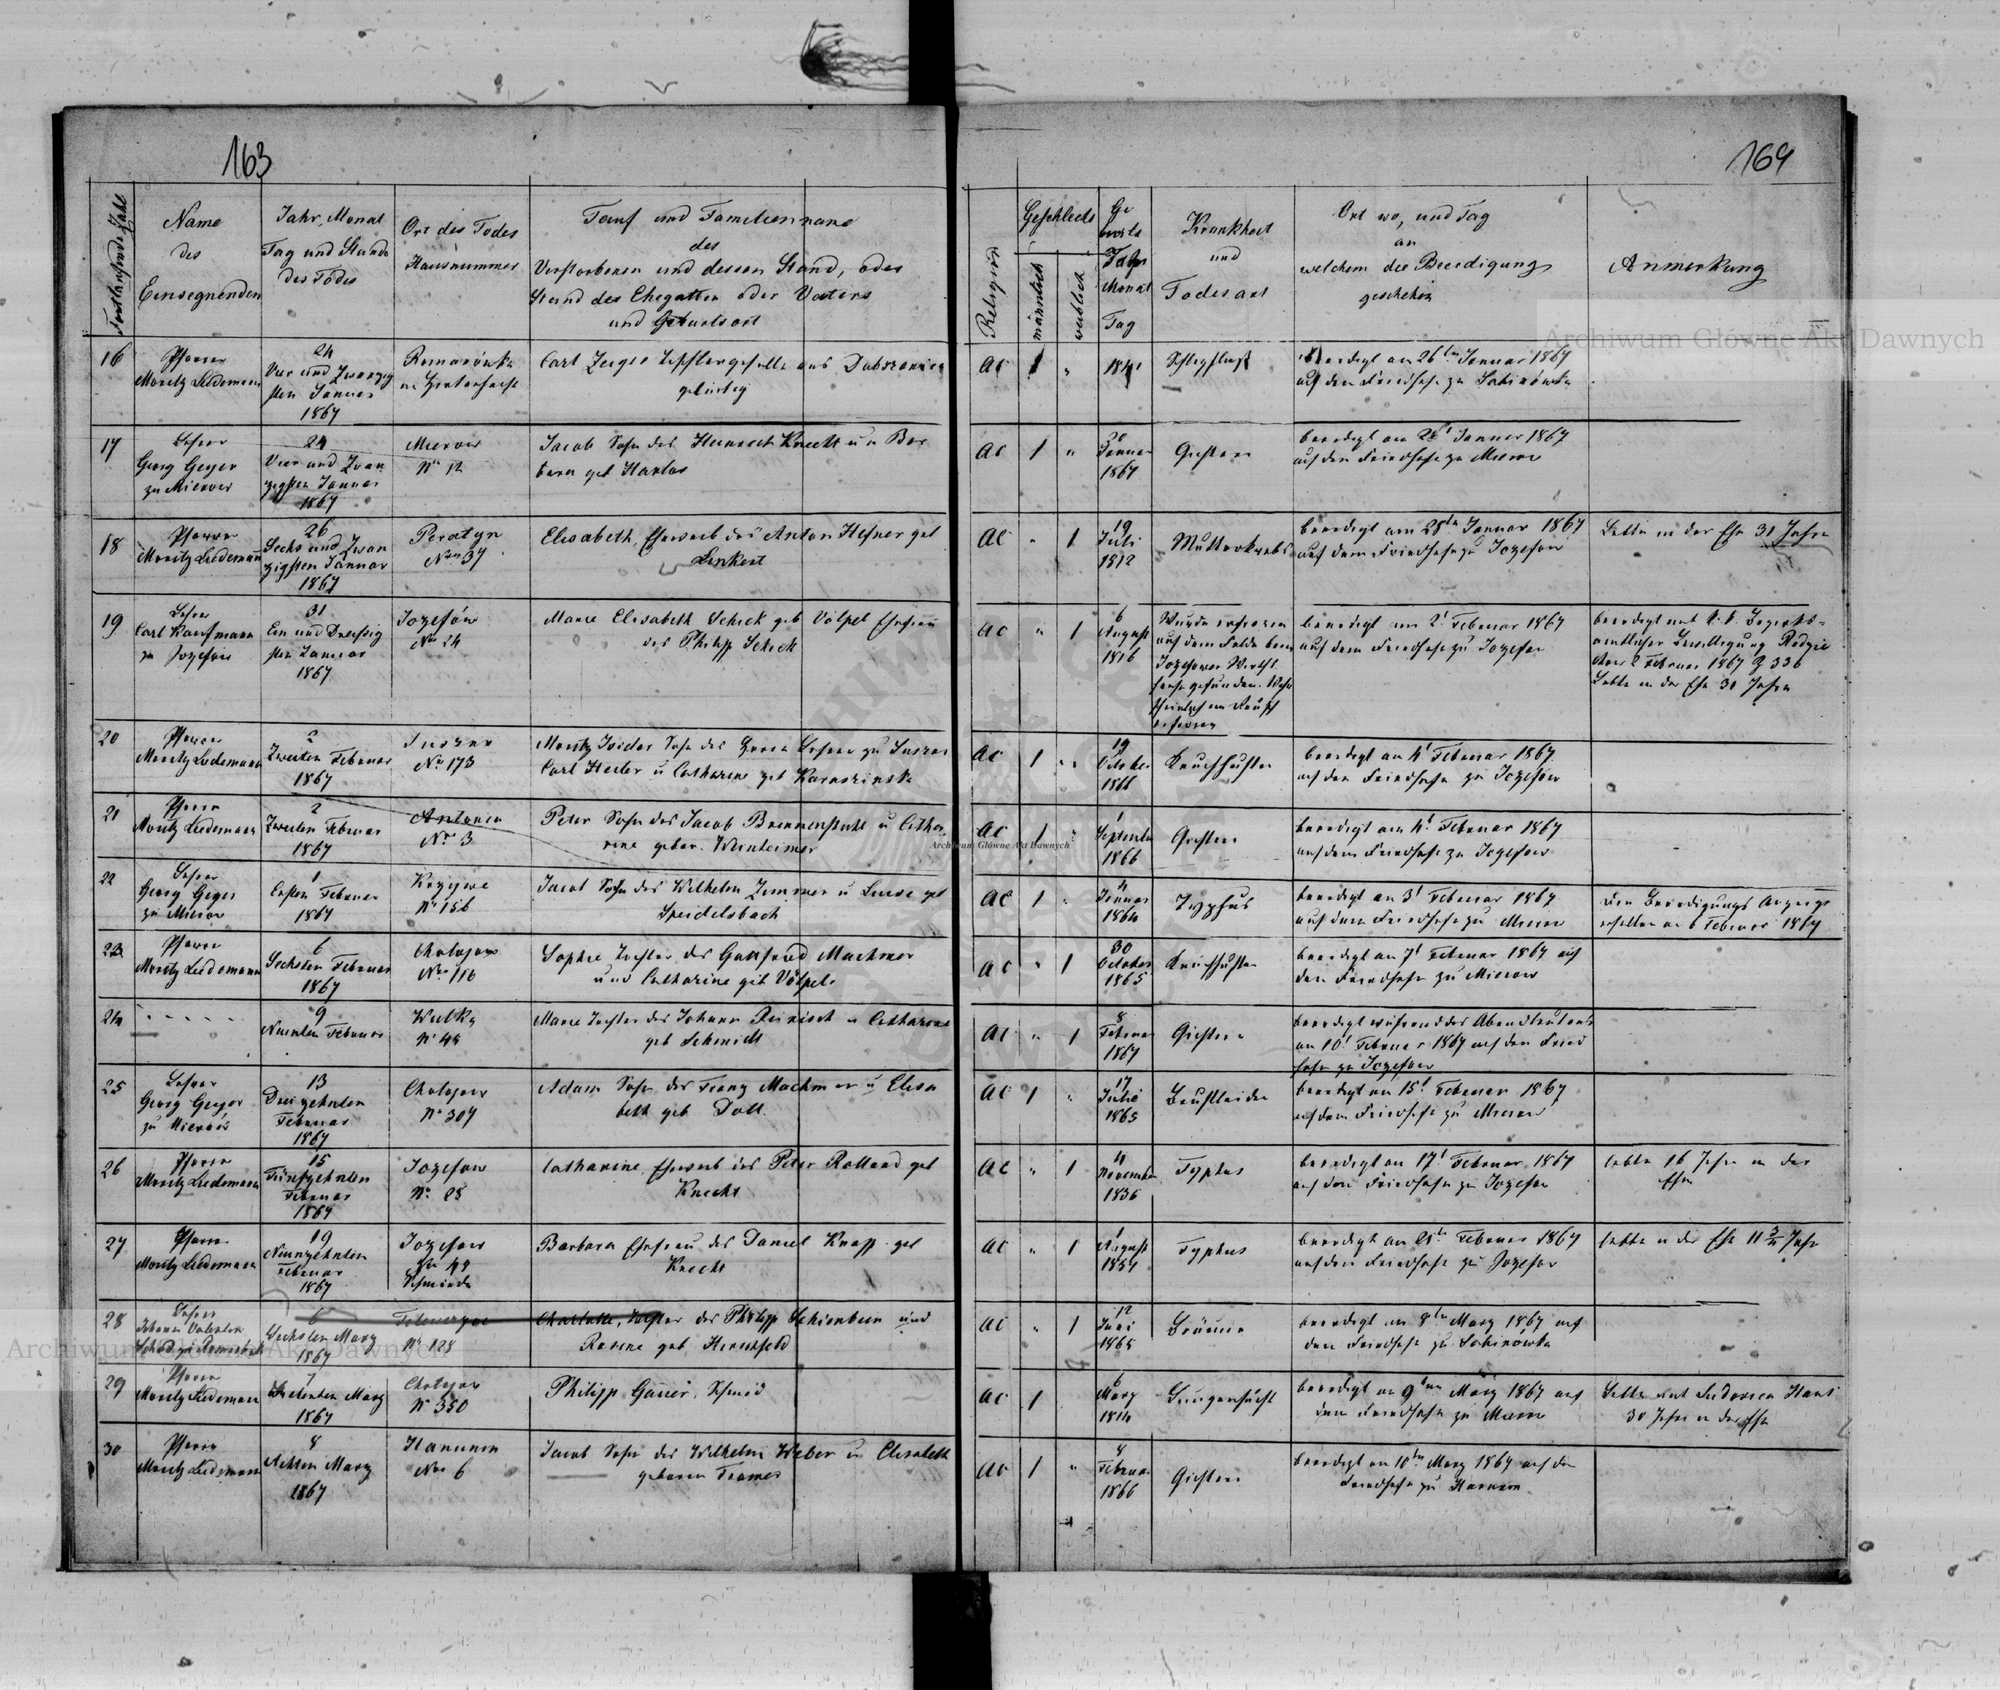 163
Fortlaufende Zahl
Name
des
Einsegnenden
Jahr, Monat
Tag und Stunde
des Todes
Ort des Todes
Hausnummer
Tauf und Familienname
des
Verstorbenen und dessen Stand, oder
Stand des Ehegatten oder Vaters
und Geburtsort
16
Pfarrer
Moritz Luedemann
24
Vier und Zwanzig
sten Januar
1867
Romanówka
Carl
aus
gebürtig
17
Lehrer
Georg Geyer
zu Mierow
24
Vier und Zwan
zigsten Januar
1867
Mierow
Nro 12
Jacob Sohn des Heinrich Knecht u. Bar
bara geb Harlos
18
Pfarrer
Moritz Luedemann
26
Sechs und Zwan
zigsten Januar
1867
Peratyn
Nro 37
Elisabeth, Eheweib des Anton Hefner geb
Linkert
19
Lehrer
Carl Kaufmann
zu Jozefow
31
Ein und Dreissig
sten Januar
1867
Jozefów
Nro 24
Marie Elisabeth Schick geb Völpel Ehefrau
des Philipp Schick
20
Pfarrer
Moritz Luedemann
2
Zweiten Februar
1867
Nro 173
Moritz Isidor Sohn des
Carl Hexler u Catharina geb
21
Pfarrer
Moritz Luedemann
2
Zweiten Februar
1867
Antonin
Nro 3
Peter Sohn des Jacob Brennenstuhl u Catha
rine gebor. Weinheimer
22
Lehrer
Georg Geyer
zu Mierow
1
Ersten Februar
1867
Krzywe
Nro 156
Jacob Sohn des Wilhelm Zimmer u Luise geb
Speidelsbach
23
Pfarrer
Moritz Luedemann
6
Sechsten Februar
1867
Chołojow
Nro 116
Sophie Tochter des Gottfried Machmer
und Catharine geb Völpel
24
9
Neunten Februar
Wulka
Marie Tochter des Johann u Catharine
geb Schmidt
25
Lehrer
Georg Geyer
zu Mierów
13
Dreizehnten
Februar
1867
Chołojow
Nro 307
Adam Sohn des Franz Machmer u Elisa
beth geb Doll
26
Pfarrer
Moritz Luedemann
15
Fünfzehnten
Februar
1867
Jozefow
Catharine, Eheweib des Peter Rolland geb
Knecht
27
Pfarrer
Moritz Luedemann
19
Neunzehnten
Februar
1867
Jozefow
Schmiede
Barbara Ehefrau des Daniel Knapp geb
Knecht
28
Lehrer
Johann Valentin
6
Sechsten März
1867
Nro 128
Charlotte, Tochter des Philipp Schienbein und
Rosine geb Hirschfeld
29
Pfarrer
Moritz Luedemann
7
Siebenten März
1867
Chołojow
Nro 350
Philipp Gauer, Schmied
30
Pfarrer
Moritz Luedemann
8
Achten März
1867
Hanunin
Nro 6
Jacob Sohn des Wilhelm Weber u Elisabeth
geboren
164
Religion
Geschlecht
männlich
weiblich
Ge
burts
Jahr
Monat
Tag
Krankheit
und
Todesart
Ort wo, und Tag
an
welchem die Beerdigung
geschehen
Anmerkung
AC
1
"
Schlagfluss
beerdigt am 26ten Januar 1867
auf dem Friedhofe zu Sabinówka
AC
1
"
Januar
1867
Gichter
beerdigt am Januar 1867
auf dem Friedhofe zu Mierow
AC
"
1
19
Juli
1812
Mutterkrebs
beerdigt am 28ten Januar 1867
auf dem Friedhofe zu Jozefow
Lebte in der Ehe 31 Jahre
AC
"
1
6
August
1816
Wurde erfroren
auf dem Felde beim
Jozefower Wirths
hause gefunden. Wahr
scheinlich im Rausch
erfroren
beerdigt am 2t Februar 1867
auf dem Friedhofe zu Jozefow
beerdigt mit k. k. Bezirks-
amtlicher Bewilligung Radzie
chow 2 Februar 1867 Z 336
Lebte in der Ehe 30 Jahre
AC
1
"
19
October
1866
Keuchhusten
beerdigt am 4t Februar 1867
auf dem Friedhofe zu Jozefow
AC
1
"
1
September
1866
Gichter
beerdigt am 4t Februar 1867
auf dem Friedhofe zu Jozefow
AC
1
"
Januar
1864
Typhus
beerdigt am 3t Februar 1867
auf dem Friedhofe zu Mierow
Den Beerdigungs Anzeige
erhalten am 6 Februar 1867
AC
"
1
30
October
1865
Keuchhusten
beerdigt am 7t Februar 1867 auf
dem Friedhofe zu Mierow
AC
"
1
8
Februar
1867
Gichter
beerdigt während des Abendläutens
am 10t Februar 1867 auf dem Fried
hofe zu Jozefow
AC
1
"
17
Juli
1865
Brustleiden
beerdigt am 15t Februar 1867
auf dem Friedhofe zu Mierow
AC
"
1
November
1836
Typhus
beerdigt am 17t Februar 1867
auf dem Friedhofe zu Jozefow
lebte 16 Jahre in der
Ehe
AC
"
1
1
August
Typhus
beerdigt am 21ten Februar 1867
auf dem Friedhofe zu Jozefow
lebte in der Ehe 11 3/4 Jahr
AC
"
1
12
Juni
1865
Bräune
beerdigt am 8ten März 1867 auf
dem Friedhofe zu Sabinówka
AC
1
6
März
1814
Lungensucht
beerdigt am 9ten März 1867 auf
dem Friedhofe zu Mierow
Lebte mit Ludovica
30 Jahre in der Ehe
AC
1
"
8
Februar
1866
Gichter
beerdigt am 10ten März 1867 auf dem
Friedhofe zu Hanunin
Archiwum Główne Akt Dawnych
Archiwum Główne Akt Dawnych
Archiwum Główne Akt Dawnych